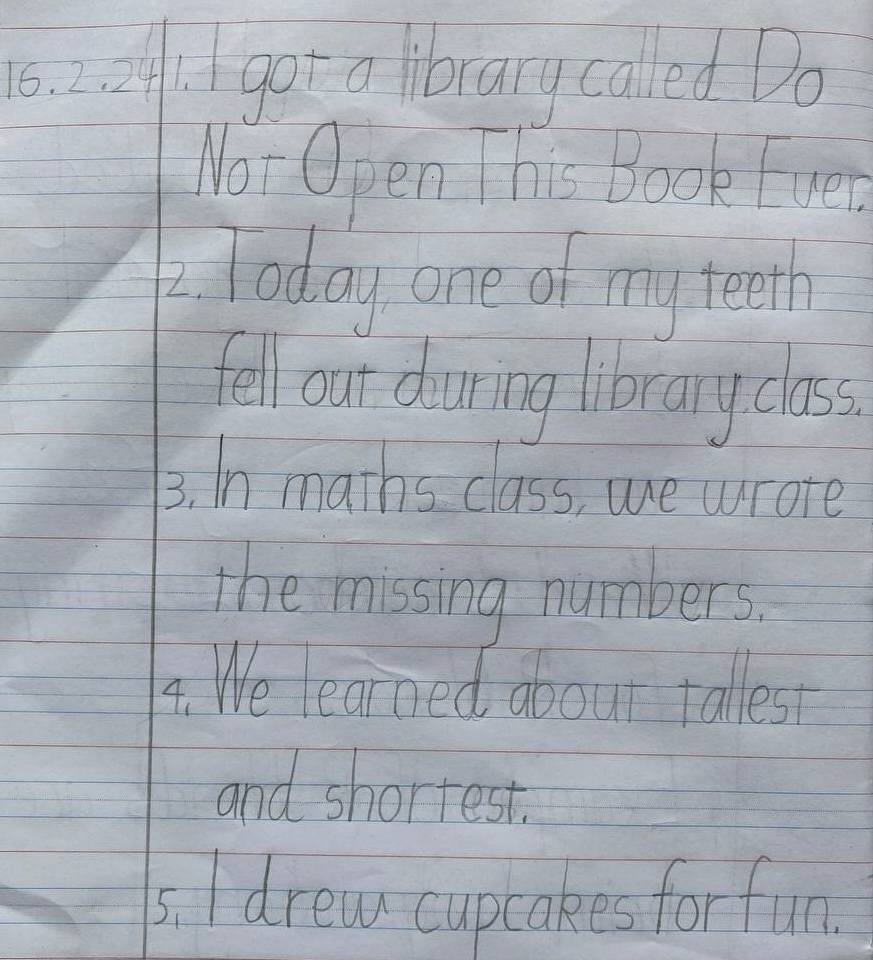 16.2.24 1. I got a library called Do
Not Open This Book Ever.
2. Today, one of my teeth
fell out during library class.
3. In maths class, we wrote
the missing numbers.
4. We learned about tallest
and shortest.
5. I drew cupcakes for fun.